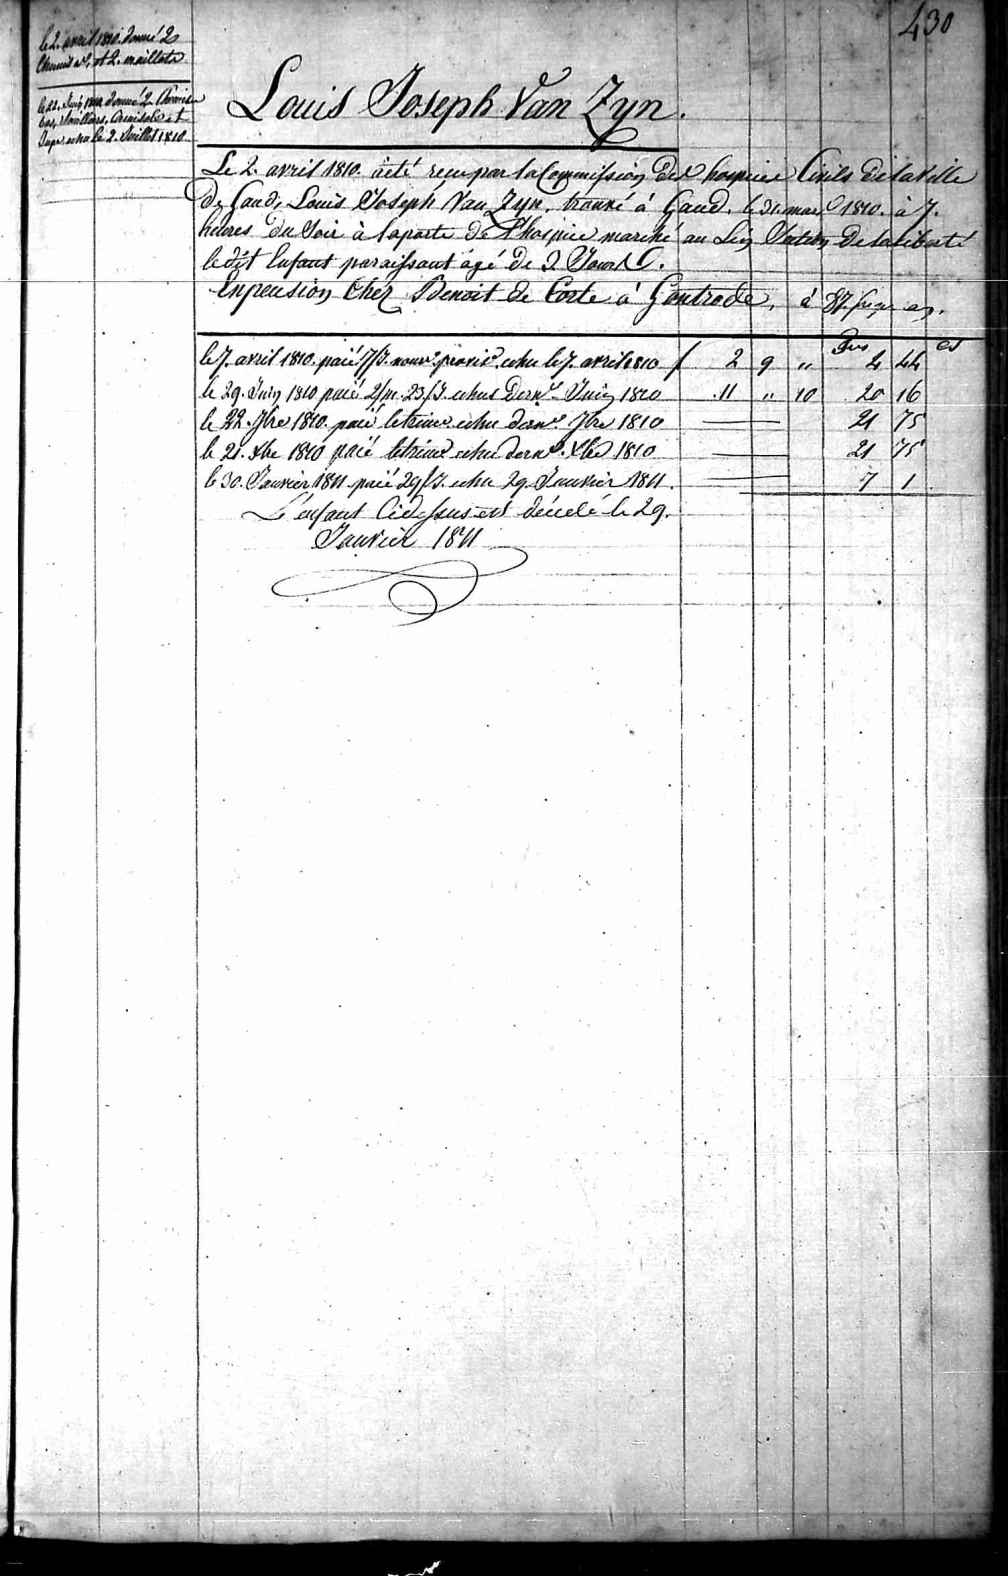 430
le 2. avril 1810. donné 2
Chemises, et 2. maillots
le 22. Juin 1810 donné 2 Chemises
bas, Souilliers, Camisole et
Jupe echu le 2. Juillet 1810
Louis Joseph Van Zyn.
Le 2. avril 1810. a été recu par la Commission des hospice Civils de la Ville
de Gand, Louis Joseph Van Zyn, trouvé à Gand, le 31. mars 1810. à 7.
heures du Soir à la porte de l'hospice marché au Lin Section de la liberté
le dit Enfant paraissant agé de 2 Jours.
En pension Chez Benoit de Corte à Gontrode, à 87. par an.
frs cs
le 7. avril 1810. paié 7/J. nour. provis. echu le 7. avril 1810 f 2 9 " 4 44
le 29. Juin 1810 paié 2/m. 23/J. echus dern. Juin 1810 11 " 10 20 16
le 22. 7bre 1810. paié letrime echu dern. 7bre 1810 21 75
le 21. Xbe 1810 paié letrime echu dern. Xbe 1810 21 75
le 30. Janvier 1811 paié 29/J. echu 29. Janvier 1811. 7 1
L'enfant Cidessus est décedé le 29.
Janvier 1811